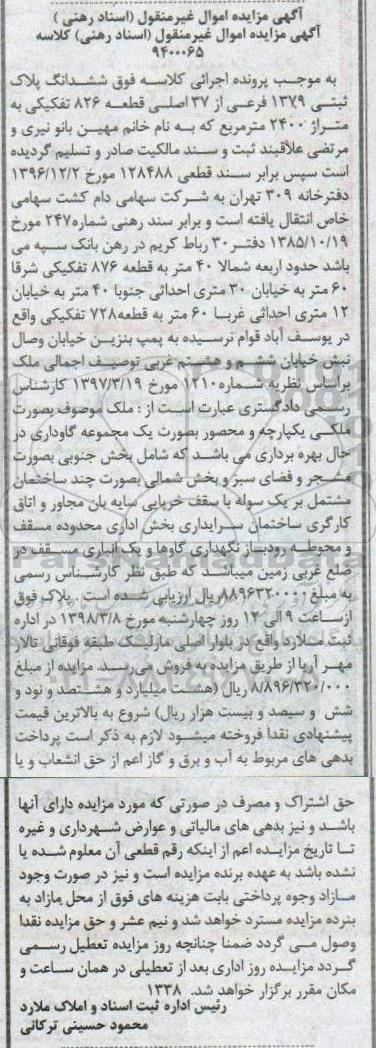 آگهی مزایده اموال غیرمنقول (اسناد رهنی )
آگهی مزایده اموال غیرمنقول (اسناد رهنی) کلاسه
۹۴۰۰۰۶۵
به موجب پرونده اجرائی کلاسه فوق ششدانگ پلاک
ثبتی ۱۳۷۹ فرعی از ۳۷ اصلی قطعه ۸۲۶ تفکیکی به
متراژ ۲۴۰۰ مترمربع که به نام خانم مهین بانو نیری و
مرتضی علاقبند ثبت و سند مالکیت صادر و تسلیم گردیده
است سپس برابر سند قطعی ۱۲۸۴۸۸ مورخ ۱۳۹۶/۱۲/۲
دفترخانه ۳۰۹ تهران به شرکت سهامی دام کشت سهامی
خاص انتقال یافته است و برابر سند رهنی شماره۲۴۷ مورخ
۱۳۸۵/۱۰/۱۹ دفتر۳۰ رباط کریم در رهن بانک سپه می
باشد حدود اربعه شمالا ۴۰ متر به قطعه ۸۷۶ تفکیکی شرقا
۶۰ متر به خیابان ۳۰ متری احداثی جنوبا ۴۰ متر به خیابان
۱۲ متری احداثی غربا ۶۰ متر به قطعه۷۲۸ تفکیکی واقع
در یوسف آباد قوام نرسیده به پمپ بنزین خیابان وصال
نبش خیابان ششم و هشتم غربی توصیف اجمالی ملک
براساس نظریه شماره ۱۲۱۰ مورخ ۱۳۹۷/۳/۱۹ کارشناس
رسمی دادگستری عبارت است از : ملک موصوف بصورت
ملکی یکپارچه و محصور بصورت یک مجموعه گاوداری در
حال بهره برداری می باشد که شامل بخش جنوبی بصورت
مشجر و فضای سبز و بخش شمالی بصورت چند ساختمان
مشتمل بر یک سوله با سقف خرپایی سایه بان مجاور و اتاق
کارگری ساختمان سرایداری بخش اداری محدوده مسقف
و محوطه روباز نگهداری گاوها و یک انباری مسقف در
ضلع غربی زمین میباشد که طبق نظر کارشناس رسمی
به مبلغ ۸۸۹۶۳۲۰۰۰۰ریال ارزیابی شده است . پلاک فوق
ازساعت ۹ الی ۱۲ روز چهارشنبه مورخ ۱۳۹۸/۳/۸ در اداره
ثبت ملارد واقع در بلوار اصلی مارلیک طبقه فوقانی تالار
مهر آریا از طریق مزایده به فروش می‌رسد. مزایده از مبلغ
۸/۸۹۶/۳۲۰/۰۰۰ ریال (هشت میلیارد و هشتصد و نود و
شش و سیصد و بیست هزار ریال) شروع به بالاترین قیمت
پیشنهادی نقدا فروخته میشود لازم به ذکر است پرداخت
بدهی های مربوط به آب و برق و گاز اعم از حق انشعاب و یا
حق اشتراک و مصرف در صورتی که مورد مزایده دارای آنها
باشد و نیز بدهی های مالیاتی و عوارض شهرداری و غیره
تا تاریخ مزایده اعم از اینکه رقم قطعی آن معلوم شده یا
نشده باشد به عهده برنده مزایده است و نیز در صورت وجود
مازاد وجوه پرداختی بابت هزینه های فوق از محل مازاد به
بنرده مزایده مسترد خواهد شد و نیم عشر و حق مزایده نقدا
وصول می گردد ضمنا چنانچه روز مزایده تعطیل رسمی
گردد مزایده روز اداری بعد از تعطیلی در همان ساعت و
مکان مقرر برگزار خواهد شد. ۱۳۳۸
رئیس اداره ثبت اسناد و املاک ملارد
محمود حسینی ترکانی